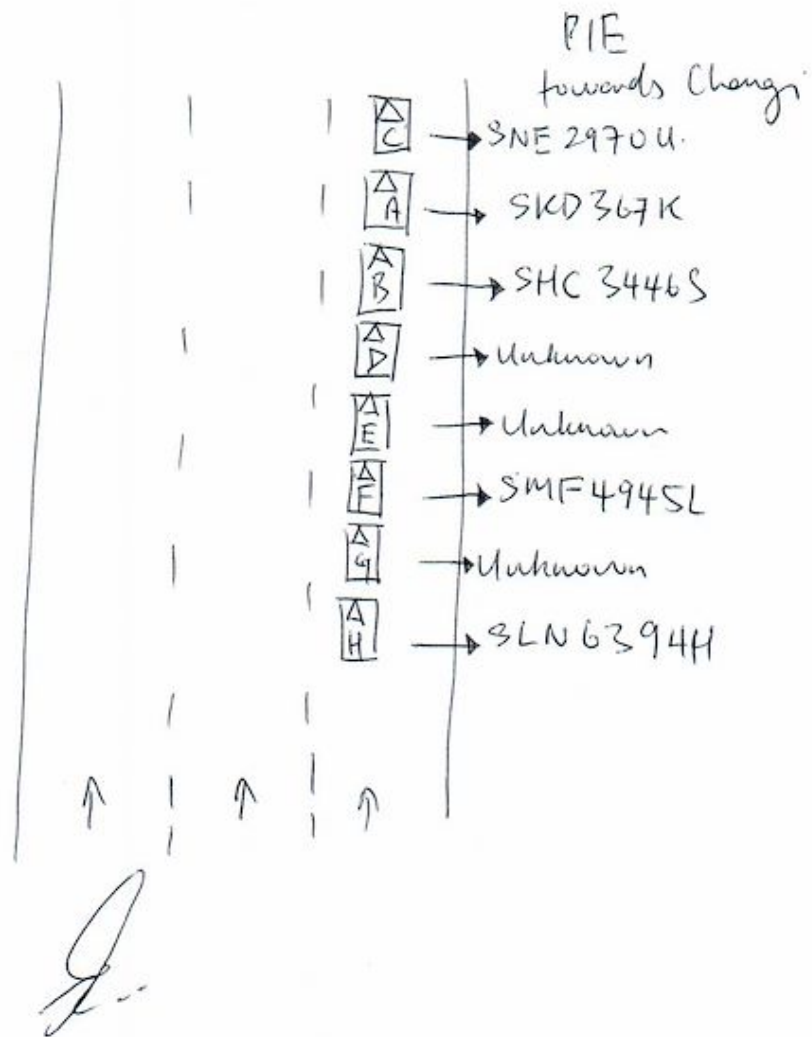 PIE
towards Changi
C → SNE 2970U.
A → SKD367K
B → SHC 3446S
D → Unknown
E → Unknown
F → SMF4945L
G → Unknown
H → SLN6394H